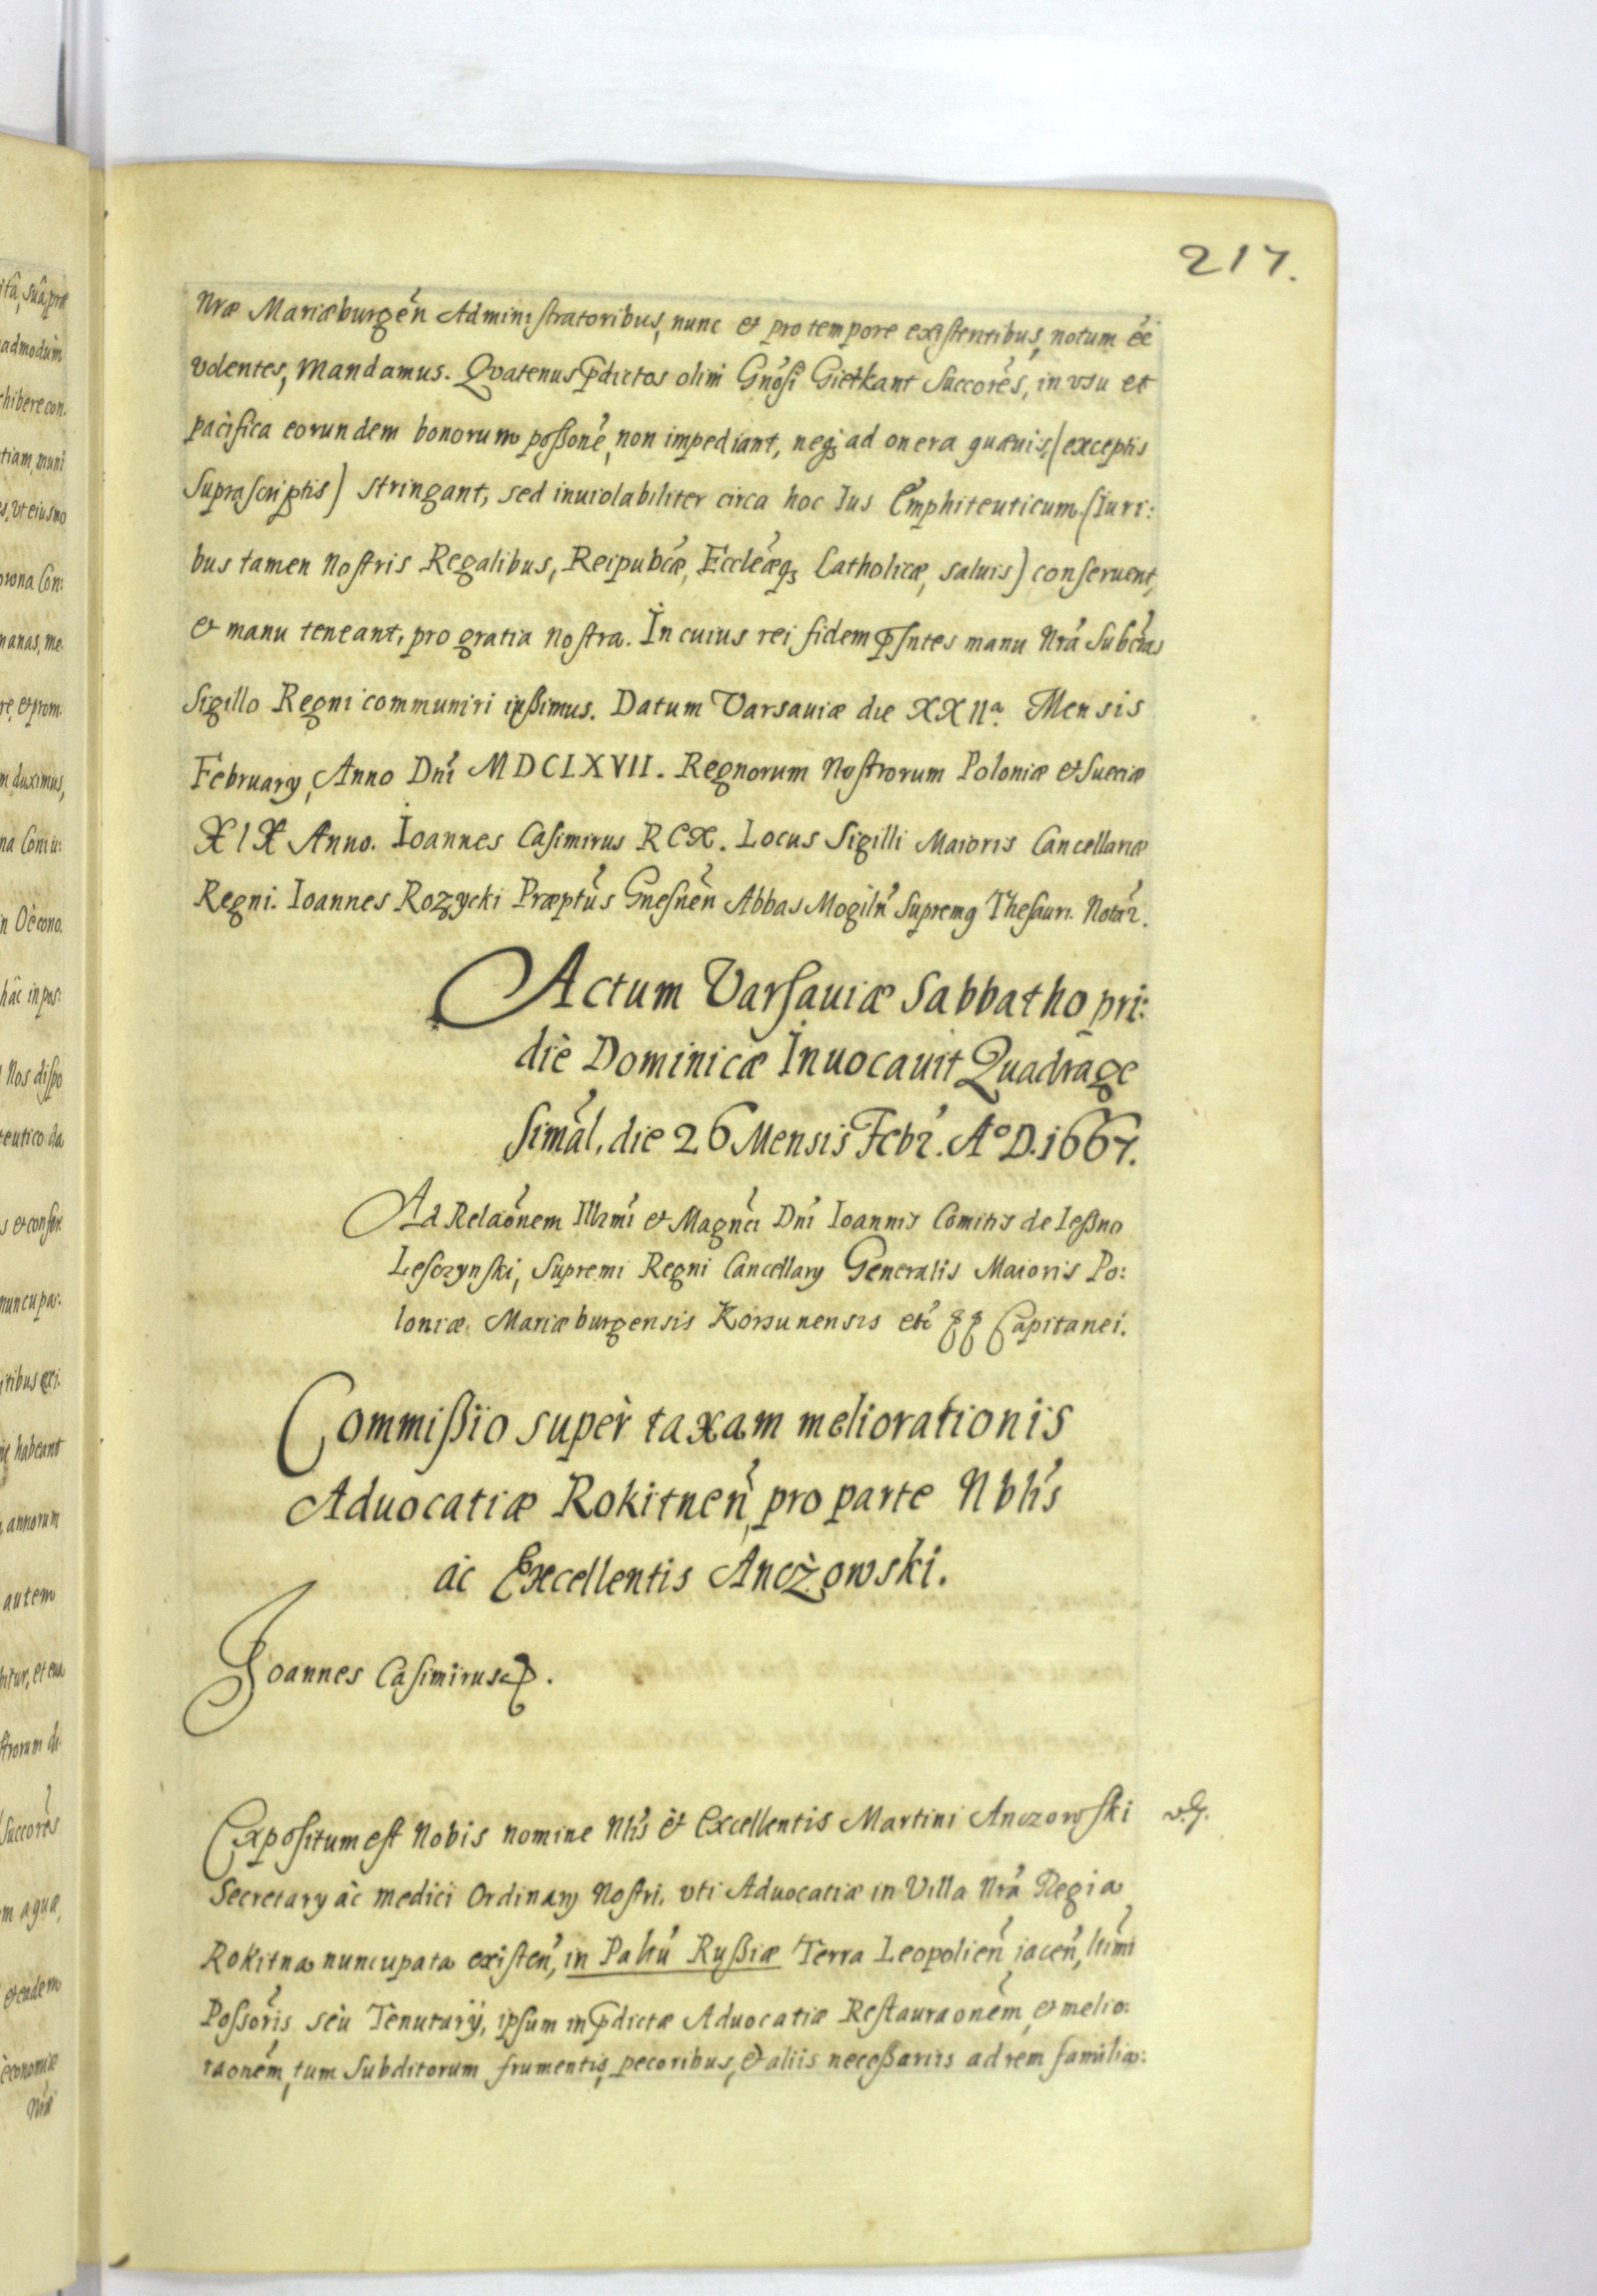 217.
Nræ Mariæburgen̄ Administratoribus, nunc et pro tempore existentibus, notum eē
volentes, Mandamus. Qvatenus p̄dictos olim Gnōsi Gietkant Succorēs, in vsu et
pacifica eorundem bonorum possonē, non impediant, neq; ad onera quævis, (exceptis
suprascriptis) stringant, sed inviolabiliter circa hoc Ius Emphiteuticum (Iuri:
bus tamen Nostris Regalibus, Reipubcæ, Eccleæq; Catholicæ, salvis) conservent,
et manu teneant, pro gratia nostra. In cuius rei fidem p̄sntes manu Nrā Subcrās
Sigillo Regni communiri iussimus. Datum Varsaviæ die XXIIa. Mensis
February, Anno Dni MDCLXVII. Regnorum Nostrorum Poloniæ et Sueciæ
XIX Anno. Ioannes Casimirus REX. Locus Sigilli Maioris Cancellariæ
Regni. Ioannes Rozycki Præptus Gnesnen̄ Abbas Mogiln̄ Supremq Thesaur. Notar.
Actum Varsaviæ Sabbatho pri:
die Dominicæ Invocavit Quadrage
simal, die 26 Mensis Febr. Ao D. 1667.
Ad Relaōnem Illmi et Magnci Dni Ioannis Comitis de Lessno
Lesczynski, Supremi Regni Cancellary Generalis Maioris Po:
loniæ, Mariæburgensis Korsunensis etc Capitanei.
Commissio super taxam meliorationis
Advocatiæ Rokitnen̄, pro parte Nblis
ac Excellentis Anczowski.
Ioannes Casimirus
Expositum est Nobis nomine Nlis et Excellentis Martini Anczowski
Secretary ac medici Ordinary Nostri, vti Advocatiæ in Villa Nrā Regia
Rokitna nuncupata existen̄, in Paltū Russiæ Terra Leopolien̄ iacen̄, ltimi
Possoris seu Tenutarij, ipsum in p̄dictæ Advocatiæ Restauraonēm, et melio:
raonēm, tum Subditorum frumentis, pecoribus, et aliis necessariis ad rem familia: